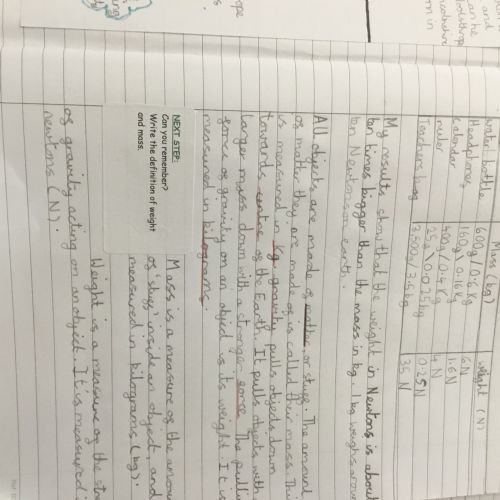 Mass (kg)
weight (N)
water bottle 600g / 0.6 kg 6N
Headphones 160g / 0.16 kg 1.6N
calendar 400g / 0.4 kg 4 N
ruler 25g \ 0.025kg 0.25N
Teachers bag 3,500g / 3.5kg 35 N
My results show that the weight in Newtons is about
ten times bigger than the mass in kg. 1kg weighs around
ten Newtons on earth.
All objects are made of matter, or stuff. The amount
of matter they are made of is called their mass. This
is measured in kg. gravity pulls objects down
towards centre of the Earth. It pulls objects with
larger mass down with a stronger force. The pulling
force of gravity on an object is its weight It is
measured in kilograms.
NEXT STEP:
Can you remember?
Write the definition of weight
and mass.
Mass is a measure of the amount
of 'stuff' inside an object, and
measured in kilograms (kg).
Weight is a measure of the
of gravity acting on an object. It is measured
newtons (N).